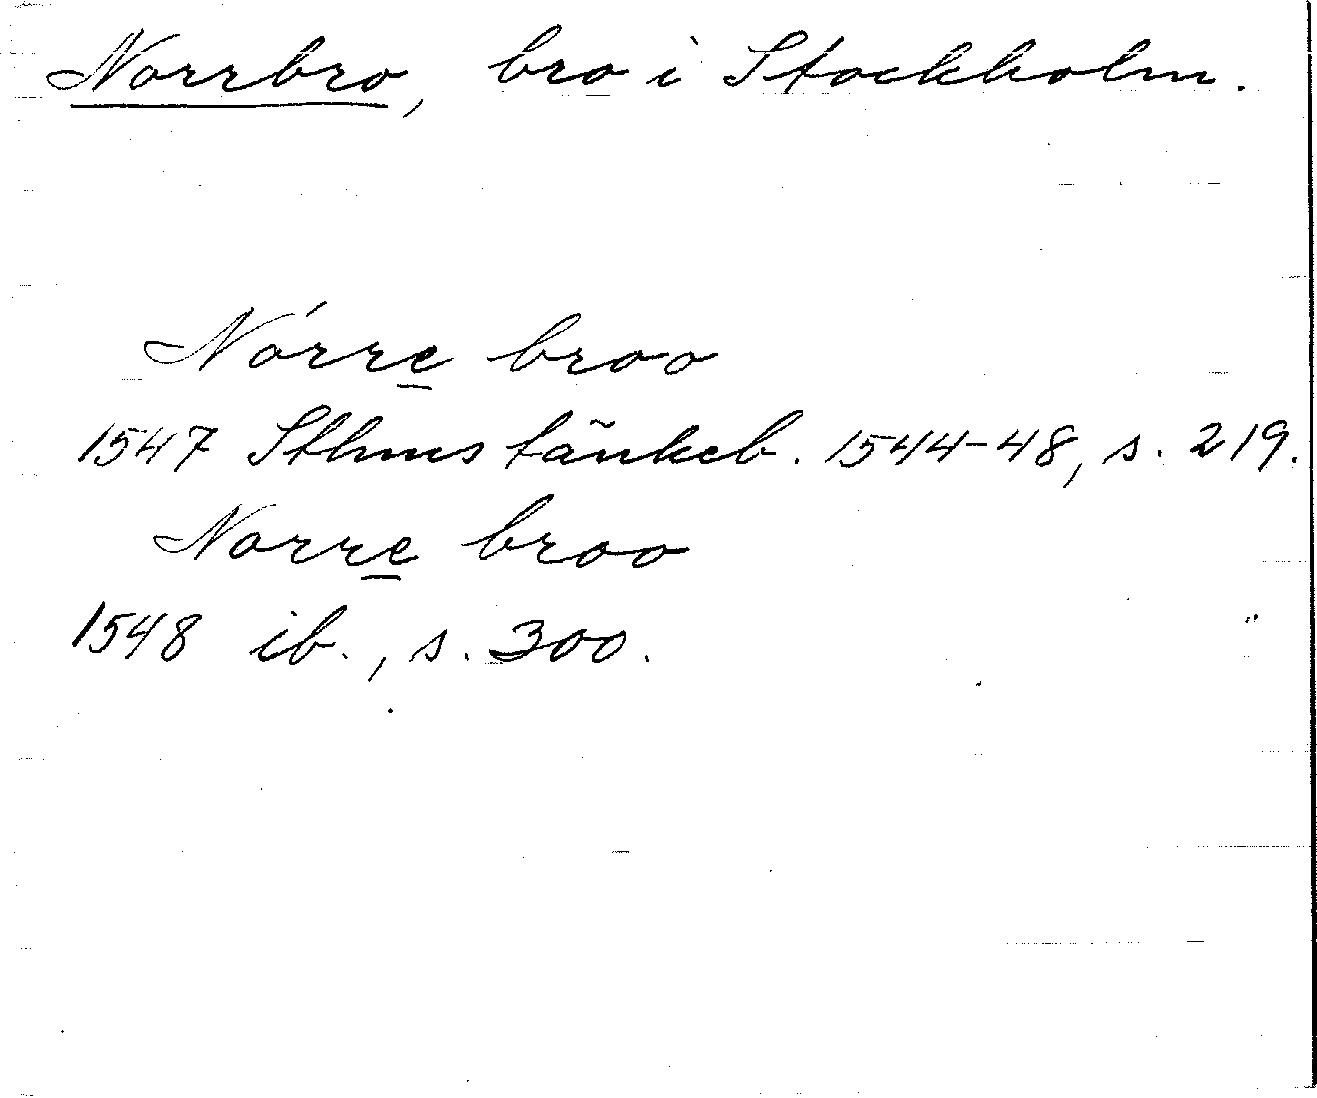 Norrbro, bro i Stockholm.
Nórre broo
1547 Sthms tänkeb. 1544-48, s. 219.
Norre broo
1548 ib., s. 300.